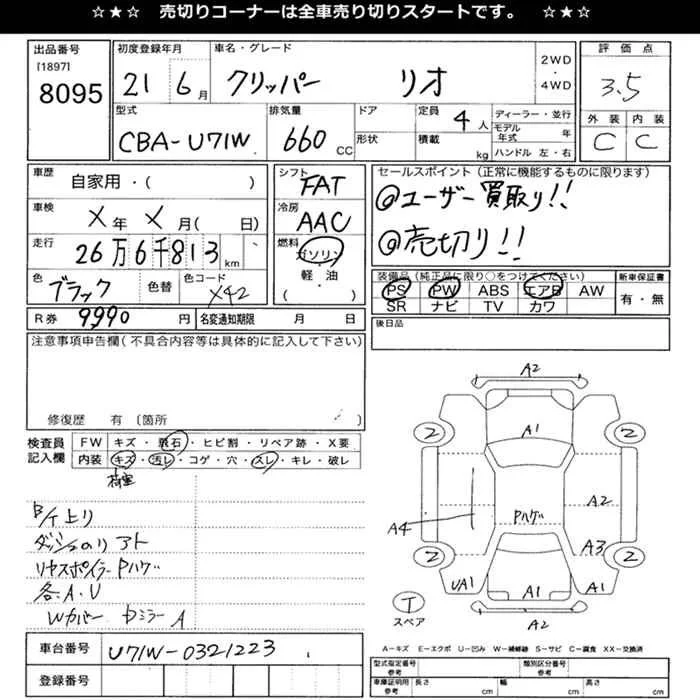 ☆★☆ 売切りコーナーは全車売り切りスタートです。 ☆★☆
出品番号
[1897]
8095
初度登録年月
21 6月
車名・グレード
クリッパー リオ
2WD
・
4WD
評価点
3.5
外装 内装
C C
型式
CBA-U71W
排気量
660 CC
ドア
形状
定員 4人
積載 kg
ディーラー・並行
モデル年式 年
ハンドル 左・右
車歴 自家用・( )
車検 X年 X月( 日)
走行 26万6千813 km
色 ブラック 色替
色コード X42
シフト FAT
冷房 AAC
燃料 ガソリン
軽・油
( )
セールスポイント(正常に機能するものに限ります)
@ユーザー買取り!!
@売切り!!
装備品(純正品に限り○をつけてください) 新車保証書
PS PW ABS エアB AW 有・無
SR ナビ TV カワ
後日品
R券 9990 円 名変通知期限 月 日
注意事項申告欄(不具合内容等は具体的に記入して下さい)
修復歴 有 〔箇所 〕
検査員記入欄
FW キズ・飛石・ヒビ割・リペア跡・X要
内装 キズ・汚レ・コゲ・穴・スレ・キレ・破レ
荷室
B/T上リ
ダッシュのリアト
リヤスポイラーPハゲ
各A.U
Wカバー ドミラーA
車台番号 U71W-0321223
登録番号
A2
2 A1 2
A4 Pハゲ A2
A3
2 UA1 A1 A1 2
A2
T
スペア
A-キズ E-エクボ U-凹み W-補修跡 S-サビ C-腐食 XX-交換済
型式指定番号 類別区分番号
車庫証明用参考 長さ cm 幅 cm 高さ cm